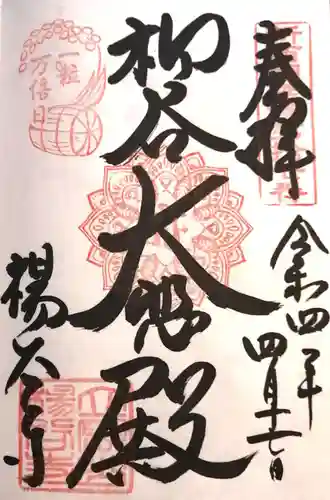 奉拝
令和四年四月十七日
柳谷
大悲殿
一粒
万倍日
楊谷寺